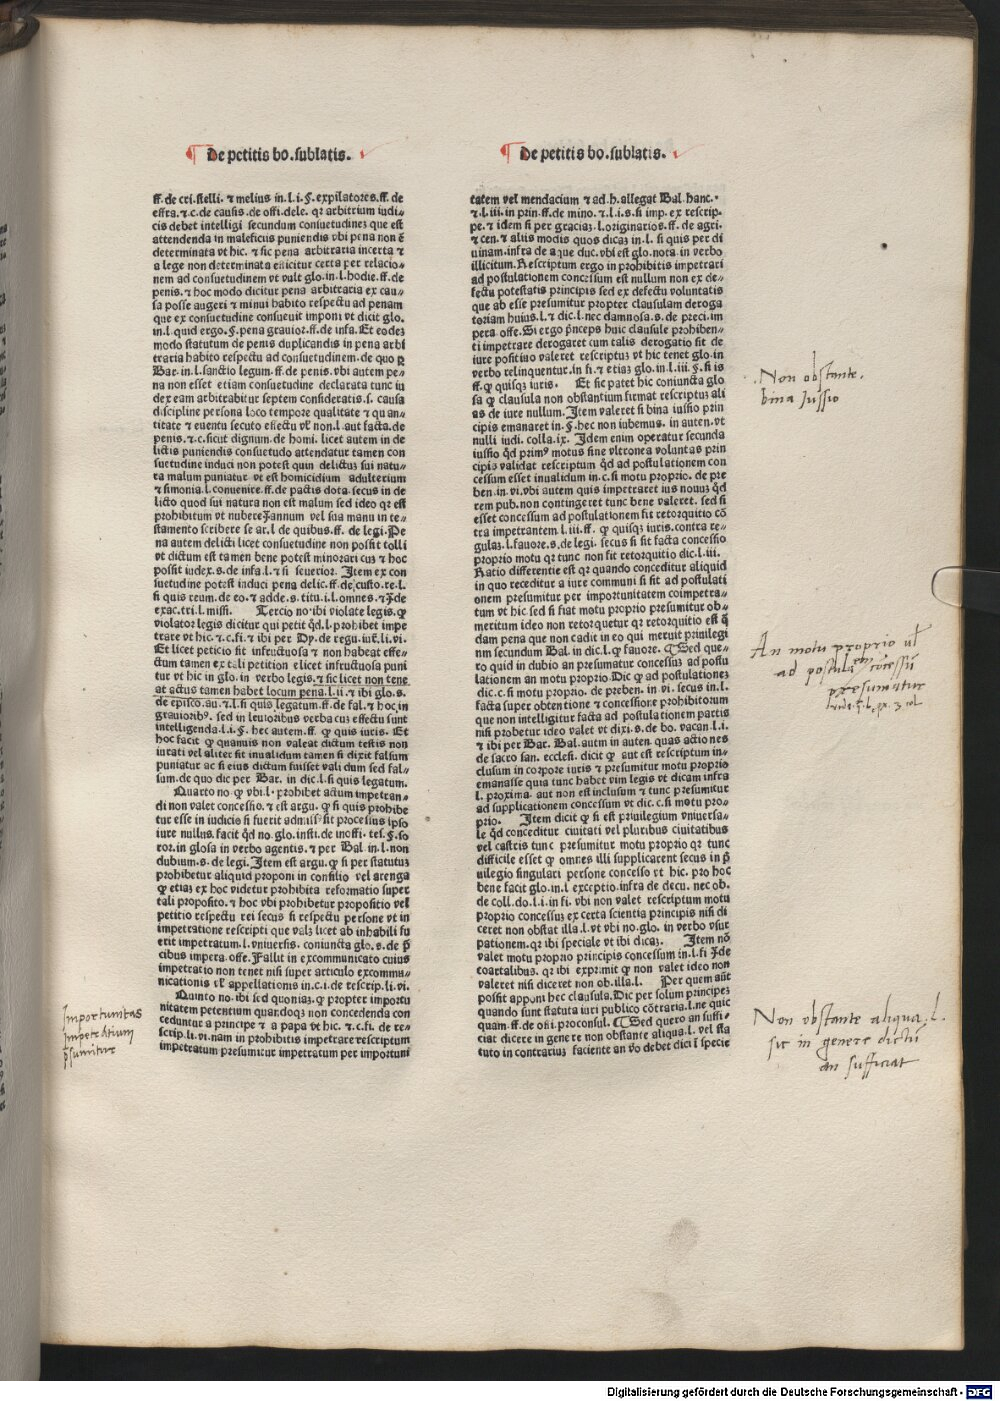 De petitis bo. sublatis.
ff. de cri. stelli. ⁊ melius in. l. i. §. expilatores. ff. de
effra. ⁊. c. de causis. de offi. dele. qꝛ arbitrium iudi-
cis debet intelligi secundum consuetudinez que est
attendenda in maleficiis puniendis vbi pena non ē
determinata vt hic. ⁊ sic pena arbitraria incerta ⁊
a lege non determinata efficitur certa per relacio-
nem ad consuetudinem vt valt glo. in. l. hodie. ff. de
penis. ⁊ hoc modo dicitur pena arbitraria ex cau-
sa posse augeri ⁊ minui habito respectu ad penam
que ex consuetudine consueuit imponi vt dicit glo.
in. l. quid ergo. §. pena grauior. ff. de infa. Et eodez
modo statutum de penis duplicandis in pena arbi
traria habito respectu ad consuetudinem. de quo ꝑ
Bar. in. l. sanctio legum. ff. de penis. vbi autem pe-
na non esset etiam consuetudine declarata tunc iu
dex eam arbitrabitur septem consideratis. s. causa
discipline persona loco tempore qualitate ⁊ quan-
titate ⁊ euentu secuto effectu vl̓ non. l. aut facta. de
penis. ⁊. c. sicut dignum. de homi. licet autem in de
lictis puniendis consuetudo attendatur tamen con
suetudine induci non potest quin delictuz sui natu-
ra malum puniatur vt est homicidium adulterium
⁊ simonia. l. conuenire. ff. de pactis dota. secus in de
licto quod sui natura non est malum sed ideo qꝛ est
prohibitum vt nubere Jannum vel sua manu in te-
stamento scribere se ar. l. de quibus. ff. de legi. Pe
na autem delicti licet consuetudine non possit tolli
vt dictum est tamen bene potest minorari cuz ⁊ hoc
possit iudex. s. de infa. l. ⁊ si seuerior. Item ex con
suetudine potest induci pena delic. ff. de custo. re. l.
si quis reum. de eo. ⁊ adde. s. titu. i. l. omnes. ⁊ Jde
exac. tri. l. missi. Tercio no. ibi violate legis. ꝙ
violator legis dicitur qui petit qd̓. l. prohibet impe
trare vt hic. ⁊. c. fi. ⁊ ibi per Dy. de regu. iur̄. li. vi.
Et licet peticio sit infructuosa ⁊ non habeat effe-
ctum tamen ex tali petition elicet infructuosa puni
tur vt hic in glo. in verbo legis. ⁊ sic licet non tene
at actus tamen habet locum pena. l. ii. ⁊ ibi glo. s.
de episco. au. ⁊. l. si quis legatum. ff. de fal. ⁊ hoc in
grauioribꝰ. sed in leuioribus verba cuz effectu sunt
intelligenda. l. i. §. hec autem. ff. ꝙ quis iuris. Et
hoc facit ꝙ quamuis non valeat dictum testis non
iurati vel aliter sit inualidum tamen si dixit falsum
puniatur ac si eius dictum fuisset vali dum sed fal-
sum. de quo dic per Bar. in dic. l. si quis legatum.
Quarto no. ꝙ vbi. l. prohibet actum impetran-
di non valet concessio. ⁊ est argu. ꝙ si quis prohibe
tur esse in iudicio si fuerit admissꝰ sit processus ipso
iure nullus. facit qd̓ no. glo. insti. de inoffi. tes. §. so
ror. in glosa in verbo agentis. ⁊ per Bal. in. l. non
dubium. s. de legi. Item est argu. ꝙ si per statutuz
prohibetur aliquid proponi in consilio vel arenga
ꝙ etiaz ex hoc videtur prohibita reformatio super
tali proposito. ⁊ hoc vbi prohibetur propositio vel
petitio respectu rei secus si respectu persone vt in
impetratione rescripti que valz licet ab inhabili fu
erit impetratum. l. vniuersis. coniuncta glo. s. de p̄
cibus impera. offe. Fallit in excommunicato cuius
impetratio non tenet nisi super articulo excommu-
nicationis vl̓ appellationis in. c. i. de rescrip. li. vi.
Quinto no. ibi sed quoniaz. ꝙ propter importu
nitatem petentium quandoqꝫ non concedenda con
ceduntur a principe ⁊ a papa vt hic. ⁊. c. fi. de re-
scrip. li. vi. nam in prohibitis impetrare rescriptum
impetratum presumitur impetratum per importuni
Importunitas
Impetrātium
p̄sumitur
De petitis bo. sublatis.
tatem vel mendacium ⁊ ad. h. allegat Bal. hanc.
⁊. l. iii. in prin. ff. de mino. ⁊. l. i. s. si imp. ex rescrip-
pe. ⁊ idem si per graciaz. l. originarios. ff. de agri.
⁊ cen. ⁊ aliis modis quos dicaz in. l. si quis per di
uinam. infra de aque duc. vbi est glo. nota. in verbo
illicitum. Rescriptum ergo in prohibitis impetrari
ad postulationem concessum est nullum non ex de-
fectu potestatis principis sed ex defectu voluntatis
que ab esse presumitur propter clausulam deroga
toriam huius. l. ⁊ dic. l. nec damnosa. s. de preci. im
pera. offe. Si ergo p̄nceps huic clausule prohiben-
ti impetrare derogaret cum talis derogatio sit de
iure positiuo valeret rescriptuz vt hic tenet glo. in
verbo relinquentur. in fi. ⁊ etiaz glo. in. l. iii. §. si is
ff. ꝙ quisqꝫ iuris. Et sic patet hic coniuncta glo
sa ꝙ clausula non obstantium firmat rescriptuz ali
as de iure nullum. Item valeret si bina iussio prin
cipis emanaret in. §. hec non iubemus. in auten. vt
nulli iudi. colla. ix. Idem enim operatur secunda
iussio qd̓ primꝰ motus sine vltronea voluntas prin
cipis validat rescriptum qd̓ ad postulationem con
cessum esset inualidum in. c. si motu proprio. de pre
ben. in. vi. vbi autem quis impetraret ius nouuz qd̓
rem pub. non contingeret tunc bene valeret. sed si
esset concessum ad postulationem fit retorquitio cō
tra impetrantem. l. iii. ff. ꝙ quisqꝫ iuris. contra re-
gulaz. l. fauore. s. de legi. secus si sit facta concessio
proprio motu qꝛ tunc non fit retorquitio dic. l. iii.
Ratio differentie est qꝛ quando conceditur aliquid
in quo receditur a iure communi si sit ad postulati
onem presumitur per importunitatem coimpetra-
tum vt hic sed si fiat motu proprio presumitur ob-
meritum ideo non retorquetur qꝛ retorquitio est q̄
dam pena que non cadit in eo qui meruit priuilegi
um secundum Bal. in dic. l. ꝙ fauore. Sed que-
ro quid in dubio an presumatur concessuz ad postu
lationem an motu proprio. Dic ꝙ ad postulationez
dic. c. si motu proprio. de preben. in vi. secus in. l.
facta super obtentione ⁊ concessione prohibitorum
que non intelligitur facta ad postulationem partis
nisi probetur ideo valet vt dixi. s. de bo. vacan. l. i.
⁊ ibi per Bar. Bal. autm in auten. quas actiones
de sacro san. ecclesi. dicit ꝙ aut est rescriptum in-
clusum in corpore iuris ⁊ presumitur motu proprio
emanasse quia tunc habet vim legis vt dicam infra
l. proxima. aut non est inclusum ⁊ tunc presumitur
ad supplicationem concessum vt dic. c. si motu pro-
prio. Item dicit ꝙ si est priuilegium vniuersa-
le qd̓ conceditur ciuitati vel pluribus ciuitatibus
vel castris tunc presumitur motu proprio qꝛ tunc
difficile esset ꝙ omnes illi supplicarent secus in p̄
uilegio singulari persone concesso vt hic. pro hoc
bene facit glo. in. l. exceptio. infra de decu. nec ob.
de coll. do. l. i. in fi. vbi non valet rescriptum motu
proprio concessuz ex certa scientia principis nisi di
ceret non obstat illa. l. vt vbi no. glo. in verbo vsur
pationem. qꝛ ibi speciale vt ibi dicaz. Item nō
valet motu proprio principis concessum in. l. fi Jde
coartalibus. qꝛ ibi exprimit ꝙ non valet ideo non
valeret nisi diceret non ob. illa. l. Per quem aūt
possit apponi hec clausula. Dic per solum principez
quando sunt statuta iuri publico cōtraria. l. ne quic
quam. ff. de offi. proconsul. Sed quero an suffi-
ciat dicere in genere non obstante aliqua. l. vel sta
tuto in contrarius faciente an vo debet dici ī specie
Non obstante.
bina Jussio
An motu proprio vl̓
ad postulatōem cōcessū
presumatur
Non obstante aliqua. l.
sic in genere dictū
an sufficiat
Digitalisierung gefördert durch die Deutsche Forschungsgemeinschaft - DFG